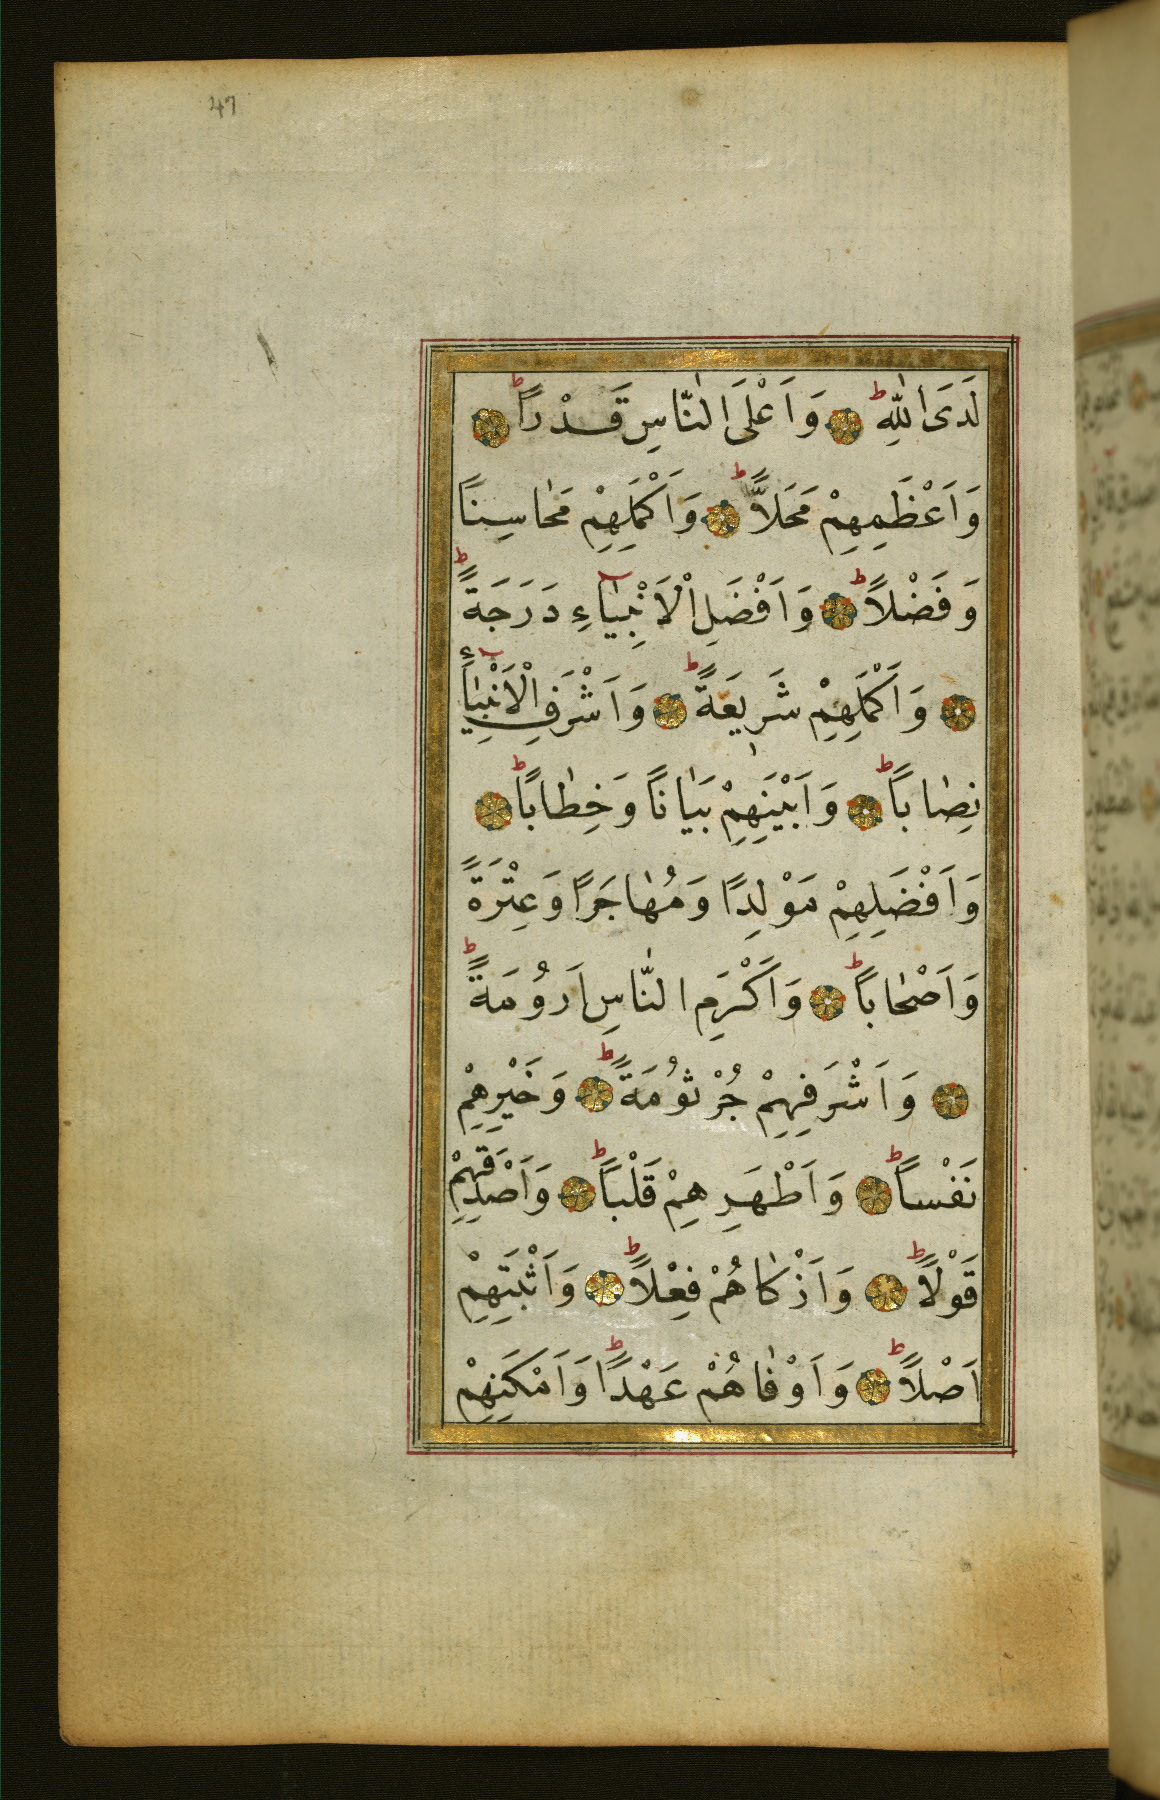 47
لَدَى اللّٰهِ ۞ وَاَعْلَى النَّاسِ قَدْرًا ۞
وَاَعْظَمِهِمْ مَحَلاًّ ۞ وَاَكْمَلِهِمْ مَحَاسِنًا
وَفَضْلاً ۞ وَاَفْضَلِ الْاَنْبِيَآءِ دَرَجَةً
۞ وَاَكْمَلِهِمْ شَرِيعَةً ۞ وَاَشْرَفِ الْاَنْبِيَآءِ
نِصَابًا ۞ وَاَبْيَنِهِمْ بَيَانًا وَخِطَابًا ۞
وَاَفْضَلِهِمْ مَوْلِدًا وَمُهَاجَرًا وَعِتْرَةً
وَاَصْحَابًا ۞ وَاَكْرَمِ النَّاسِ اَرُومَةً
۞ وَاَشْرَفِهِمْ جُرْثُومَةً ۞ وَخَيْرِهِمْ
نَفْسًا ۞ وَاَطْهَرِهِمْ قَلْبًا ۞ وَاَصْدَقِهِمْ
قَوْلاً ۞ وَاَزْكَاهُمْ فِعْلاً ۞ وَاَثْبَتِهِمْ
اَصْلاً ۞ وَاَوْفَاهُمْ عَهْدًا وَاَمْكَنِهِمْ